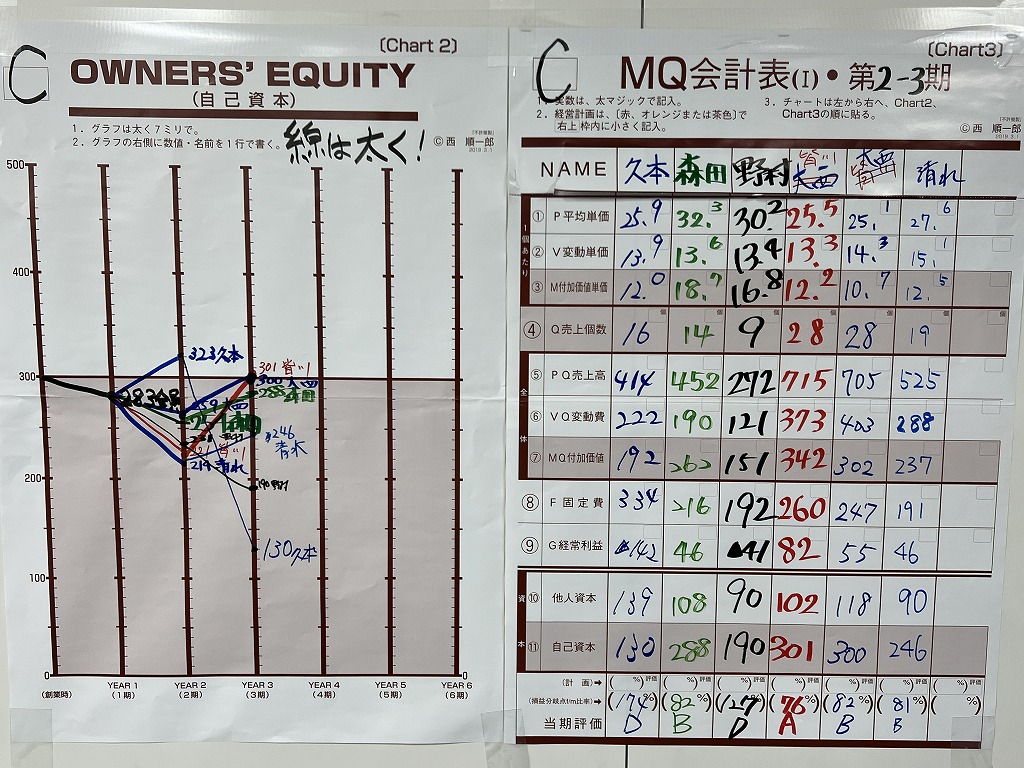 C
〔Chart 2〕
OWNERS' EQUITY
(自己資本)
1．グラフは太く7ミリで。
2．グラフの右側に数値・名前を1行で書く。
線は太く!
〔不許複製〕
2019.3.1
Ⓒ西 順一郎
500
400
300
200
100
0
0
323久本
283全員
301 皆川
300大西
288森田
246
清水
190野村
130久本
YEAR 1 YEAR 2 YEAR 3 YEAR 4 YEAR 5 YEAR 6
(創業時) (1期) (2期) (3期) (4期) (5期) (6期)
C
〔Chart3〕
MQ会計表(I)・第2-3期
1．実数は、太マジックで記入。
2．経営計画は、〔赤、オレンジまたは茶色〕で
右上枠内に小さく記入。
3．チャートは左から右へ、Chart2、
Chart3の順に貼る。
〔不許複製〕
2019.3.1
Ⓒ西 順一郎
NAME 久本 森田 野村 皆川 大西 清水
1個あたり
① P平均単価 25.9 32.3 30.2 25.5 25.1 27.6
② V変動単価 13.9 13.6 13.4 13.3 14.3 15.1
③ M付加価値単価 12.0 18.7 16.8 12.2 10.7 12.5
④ Q売上個数 16 14 9 28 28 19
全体
⑤ PQ売上高 414 452 272 715 705 525
⑥ VQ変動費 222 190 121 373 403 288
⑦ MQ付加価値 192 262 151 342 302 237
⑧ F固定費 334 216 192 260 247 191
⑨ G経常利益 ▲142 46 ▲41 82 55 46
資本
⑩ 他人資本 139 108 90 102 118 90
⑪ 自己資本 130 288 190 301 300 246
(計画)→ ( %)評価 ( %)評価 ( %)評価 ( %)評価 ( %)評価 ( %)評価 ( %)評価
(損益分岐点f/m比率)→ (174%) (82%) (127%) (76%) (82%) (81%) ( %)
当期評価 D B D A B B